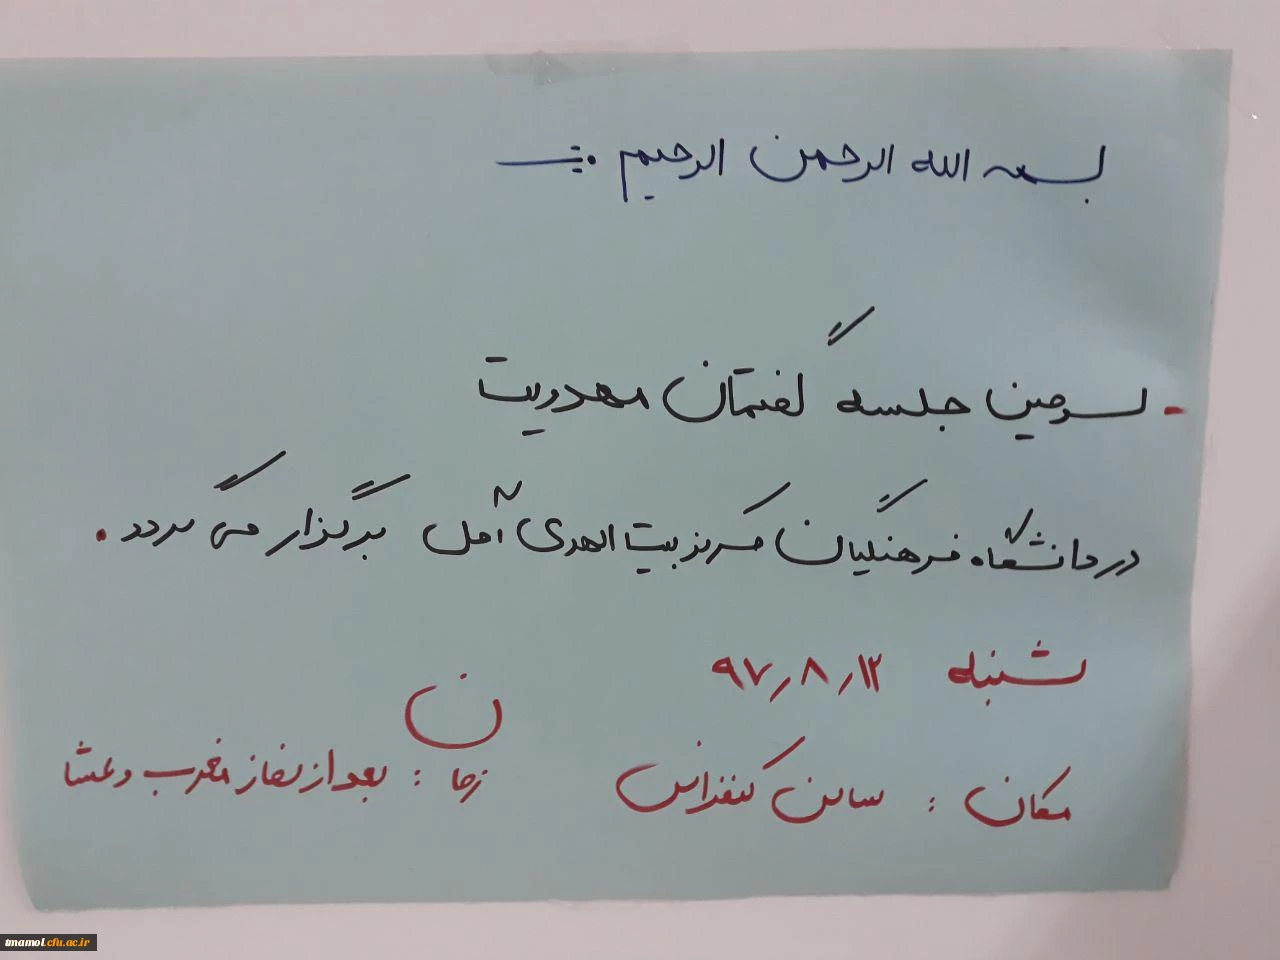 بسمه الله الرحمن الرحیم
- سومین جلسه گفتمان مهدویت
در دانشگاه فرهنگیان مرکز بیت الهدی آمل برگزار می گردد.
شنبه ۹۷/۸/۱۲
مکان : سالن کنفرانس
زمان : بعد از نماز مغرب و عشا
tmamol.cfu.ac.ir